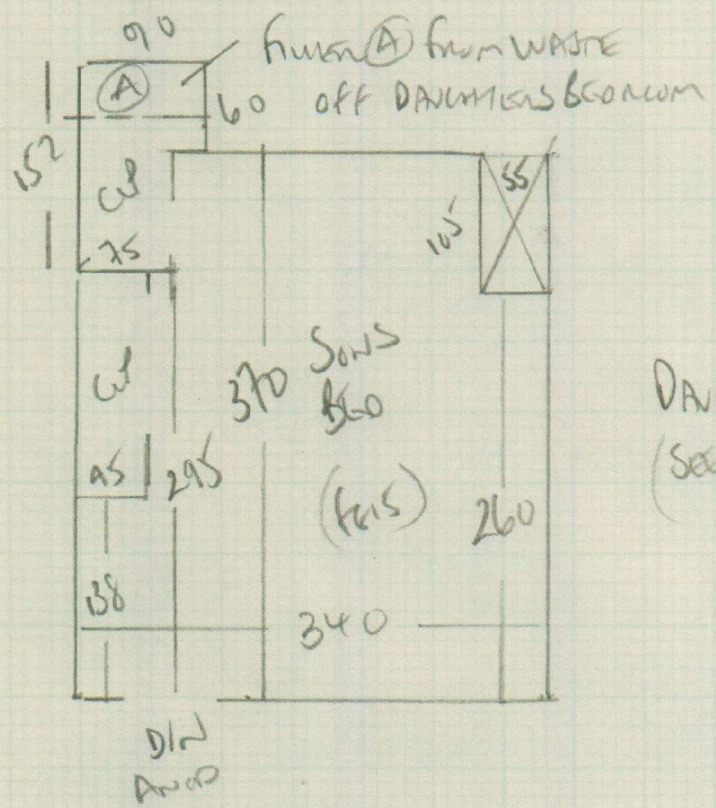 90
FILLER (A) FROM WASTE
OFF DAUGHTERS BEDROOM
A
60
152
CUP
75
55
105
CUP
370
SONS
BED
DAU
(SEE
45
295
260
138
340
DIN